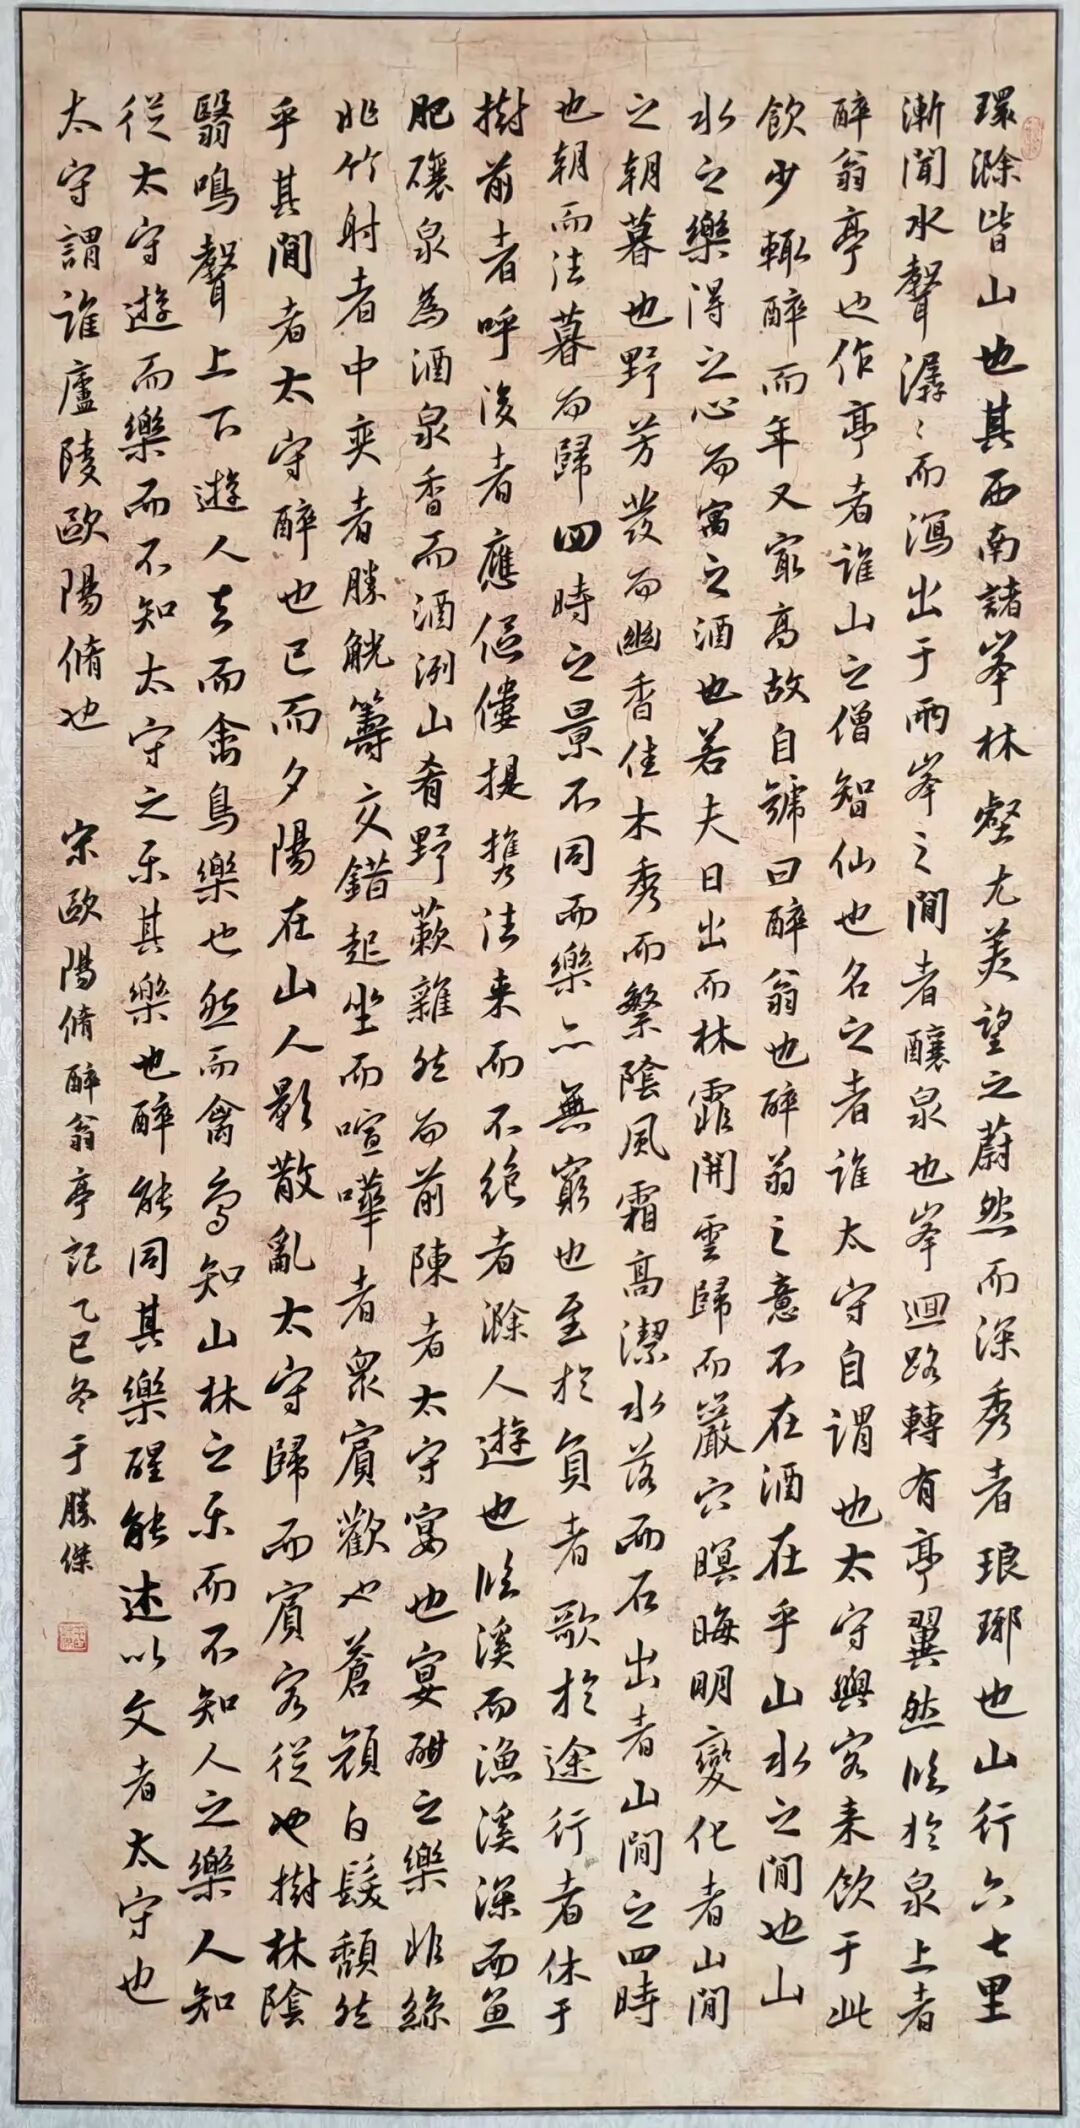 環滁皆山也其西南諸峯林壑尤美望之蔚然而深秀者琅琊也山行六七里
漸聞水聲潺〻而瀉出于兩峯之間者釀泉也峯迴路轉有亭翼然臨於泉上者
醉翁亭也作亭者誰山之僧智仙也名之者誰太守自謂也太守與客来飲于此
飲少輒醉而年又寂高故自號曰醉翁也醉翁之意不在酒在乎山水之間也山
水之樂得之心而寓之酒也若夫日出而林霏開雲歸而巖穴暝晦明變化者山間
之朝暮也野芳發而幽香佳木秀而繁陰風霜高潔水落而石出者山間之四時
也朝而往暮而歸四時之景不同而樂亦無窮也至於負者歌於途行者休于
樹前者呼後者應傴僂提攜往来而不絕者滁人遊也臨溪而漁溪深而魚
肥釀泉為酒泉香而酒洌山肴野蔌雜然而前陳者太守宴也宴酣之樂非絲
非竹射者中奕者勝觥籌交錯起坐而喧嘩者衆賓歡也蒼顏白髮頹然
乎其間者太守醉也已而夕陽在山人影散亂太守歸而賓客從也樹林陰
翳鳴聲上下遊人去而禽鳥樂也然而禽鳥知山林之乐而不知人之樂人知
從太守遊而樂而不知太守之乐其樂也醉能同其樂醒能述以文者太守也
太守謂誰廬陵歐陽脩也 宗歐陽脩醉翁亭記乙巳冬于勝傑